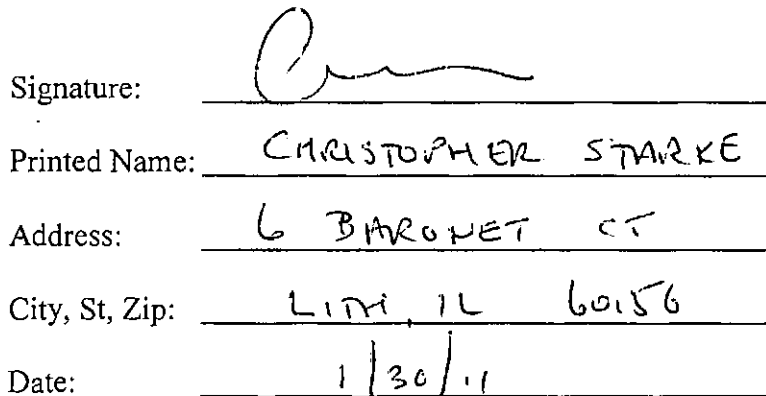 Signature:
Printed Name: CHRISTOPHER STARKE
Address: 6 BARONET CT
City, St, Zip: LITH, IL 60156
Date: 1/30/11